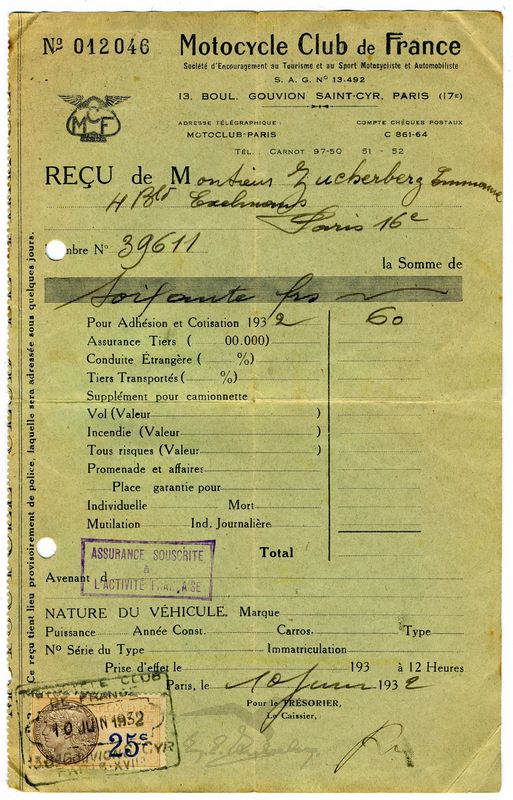 Nº 012046
Motocycle Club de France
Société d'Encouragement au Tourisme et au Sport Motocycliste et Automobiliste
S. A. G. Nº 13.492
13, BOUL. GOUVION SAINT-CYR, PARIS (17E)
MCF
ADRESSE TÉLÉGRAPHIQUE :
MOTOCLUB-PARIS
COMPTE CHÈQUES POSTAUX
C 861-64
TÉL. : CARNOT 97-50 51 - 52
REÇU de Monsieur Zucherberg Emmanuel
4 Bld Exelmans
Paris 16e
mbre Nº 39611
la Somme de
Soixante frs
Pour Adhésion et Cotisation 1932 60
Assurance Tiers ( 00.000)
Conduite Étrangère ( %)
Tiers Transportés ( %)
Supplément pour camionnette
Vol (Valeur )
Incendie (Valeur )
Tous risques (Valeur )
Promenade et affaires
Place garantie pour
Individuelle Mort
Mutilation Ind. Journalière
Total
ASSURANCE SOUSCRITE
à
L'ACTIVITÉ FRANÇAISE
Avenant d
NATURE DU VÉHICULE. Marque
Puissance Année Const. Carros. Type
Nº Série du Type Immatriculation
Prise d'effet le 193 à 12 Heures
Paris, le 10 Juin 1932
Pour le TRÉSORIER,
Le Caissier,
MOTOCYCLE CLUB
DE FRANCE
10 JUIN 1932
25c
GOUVION ST CYR
PARIS-XVIIe
Ce reçu tient lieu provisoirement de police, laquelle sera adressée sous quelques jours.